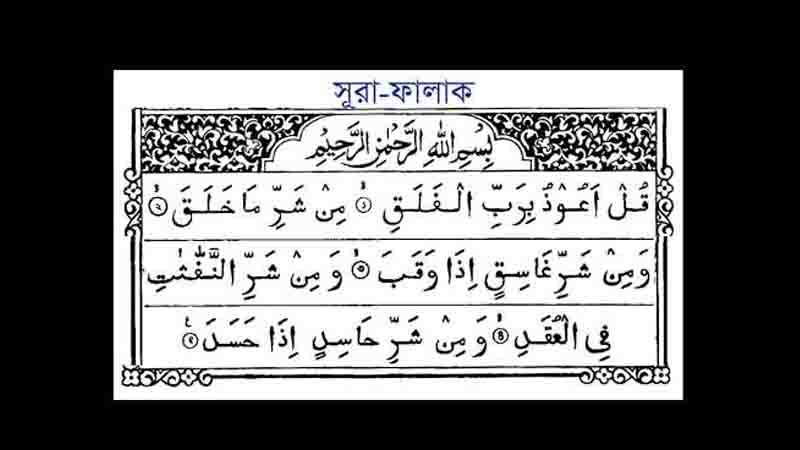 সূরা-ফালাক
بِسْمِ اللهِ الرَّحْمٰنِ الرَّحِيْمِ
قُلْ اَعُوْذُ بِرَبِّ الْفَلَقِ ۙ۱ مِنْ شَرِّ مَا خَلَقَ ۙ۲
وَمِنْ شَرِّ غَاسِقٍ اِذَا وَقَبَ ۙ۳ وَمِنْ شَرِّ النَّفّٰثٰتِ
فِي الْعُقَدِ ۙ۴ وَمِنْ شَرِّ حَاسِدٍ اِذَا حَسَدَ ۵